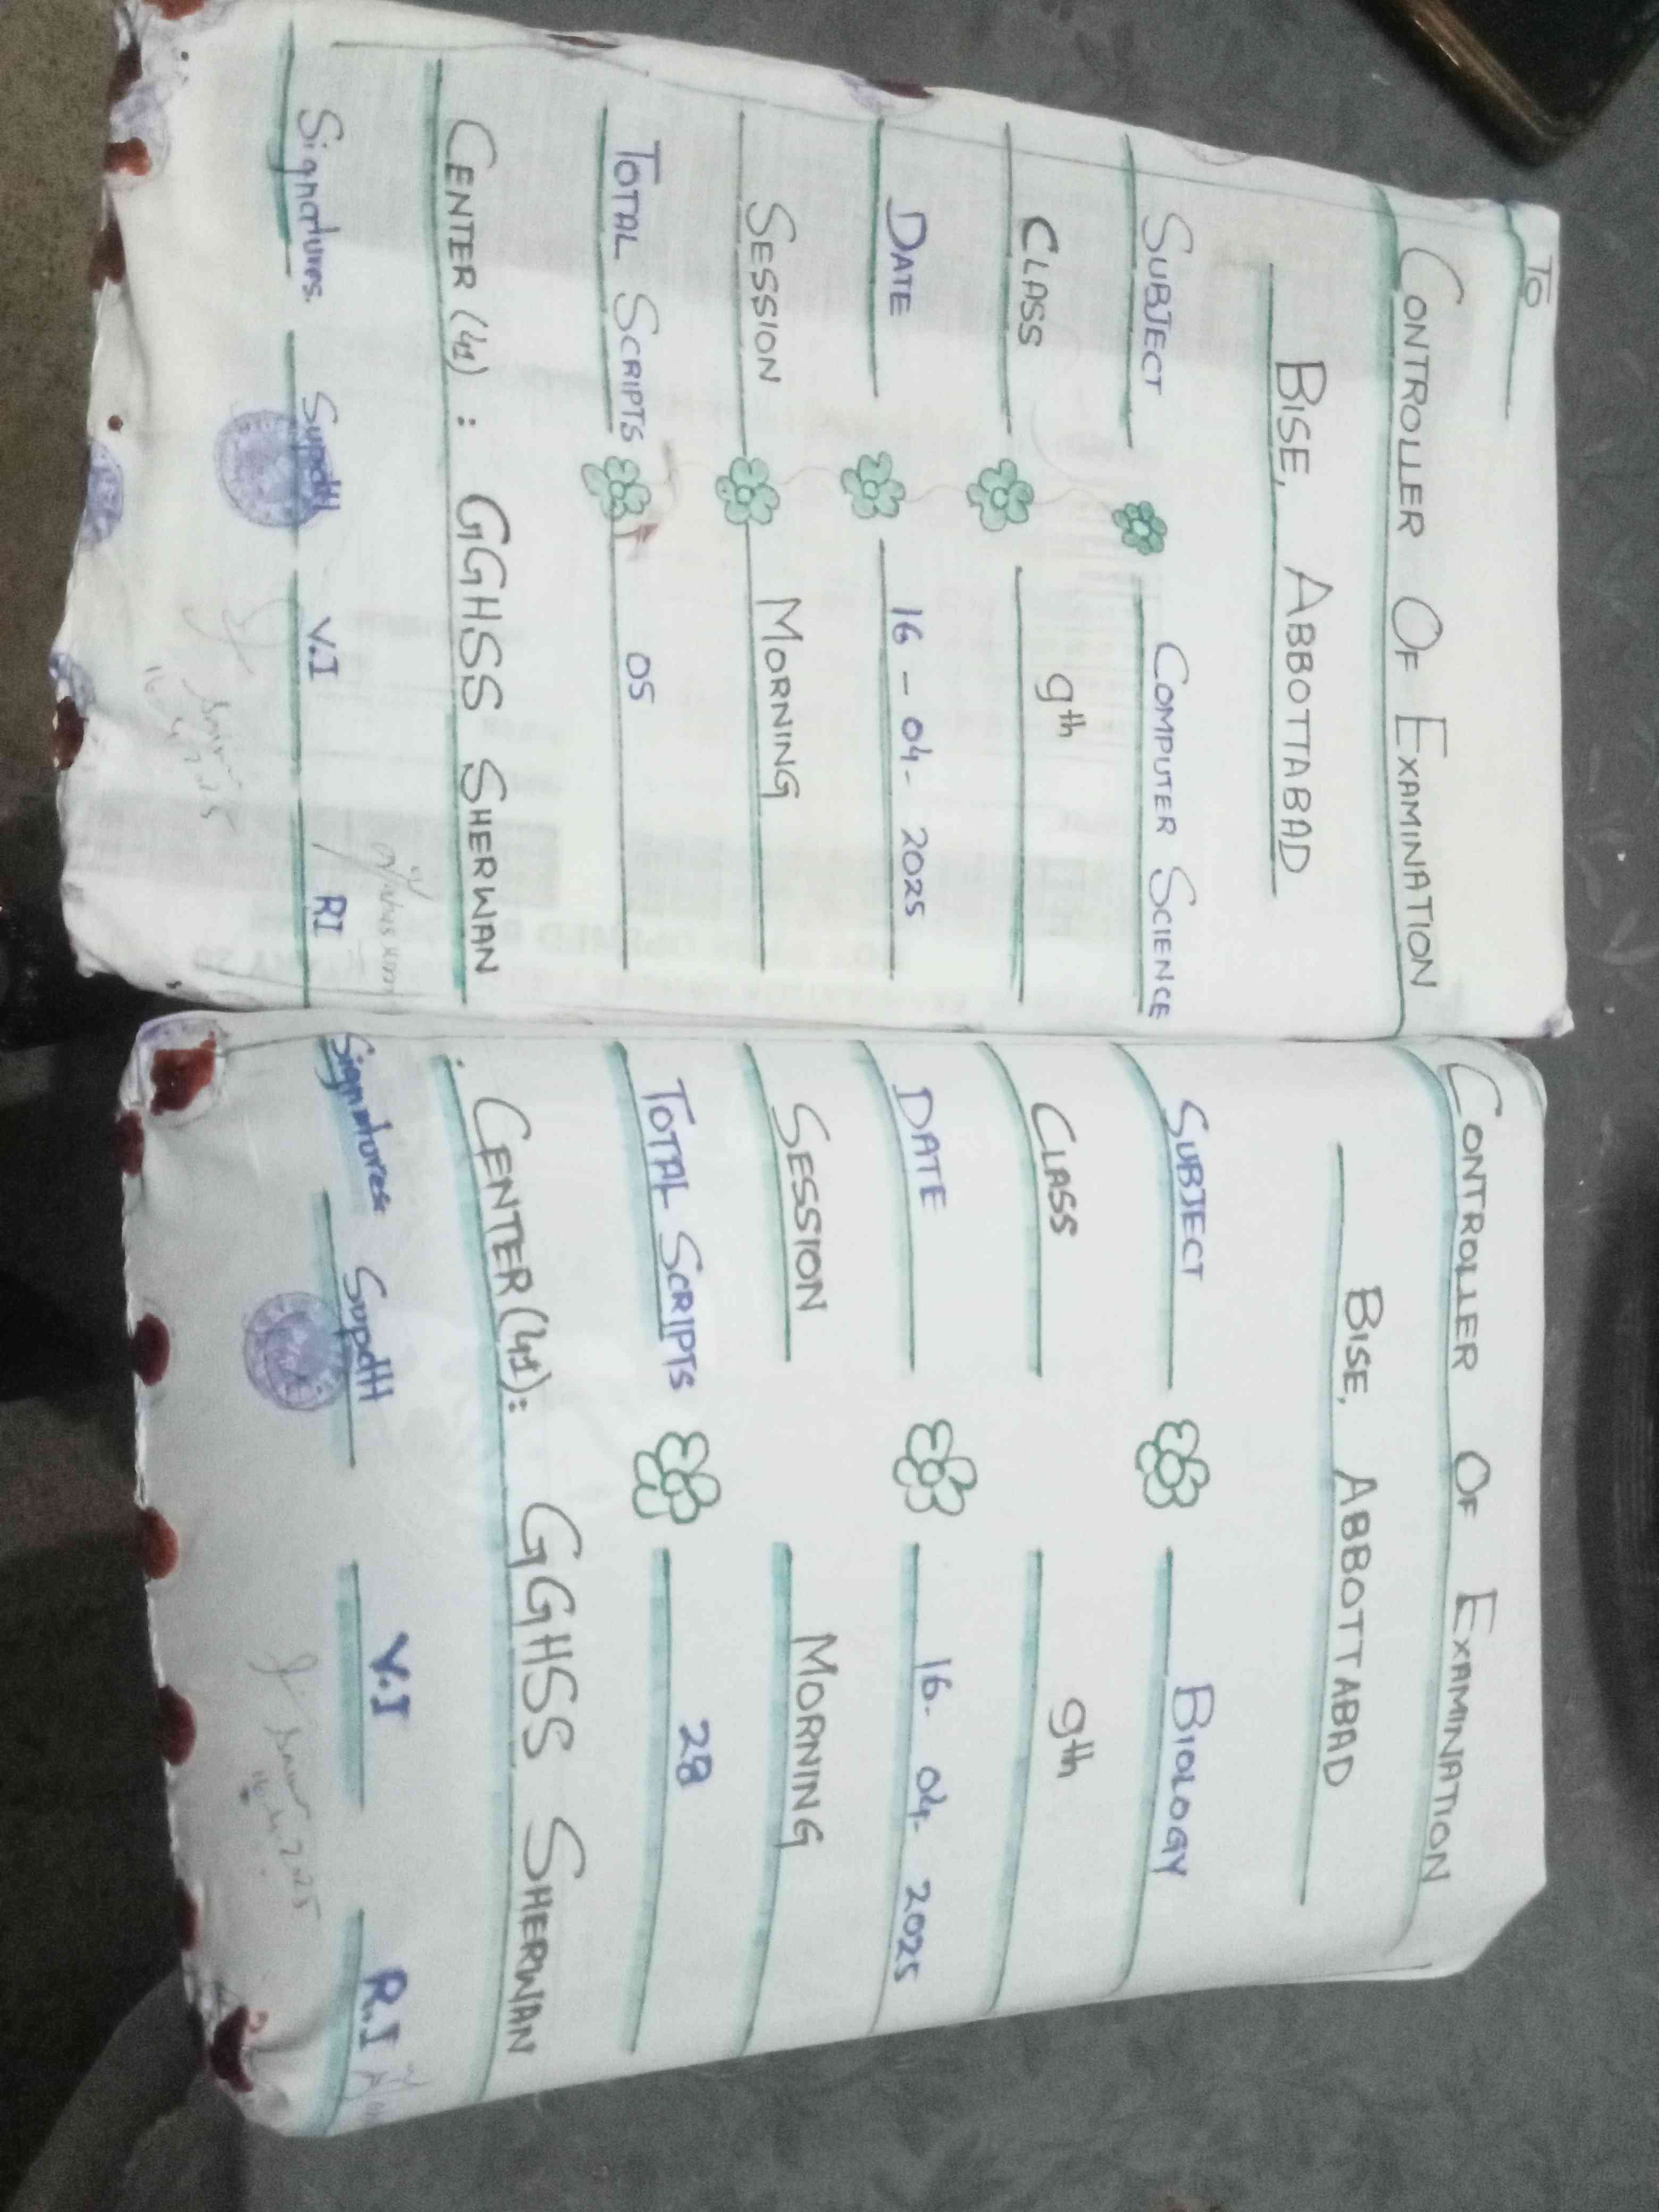 To
CONTROLLER OF EXAMINATION
BISE, ABBOTTABAD
SUBJECT COMPUTER SCIENCE
CLASS 9th
DATE 16-04-2025
SESSION MORNING
TOTAL SCRIPTS 05
CENTER (41) : GGHSS SHERWAN
Signatures. Supdtt V.I RI
CONTROLLER OF EXAMINATION
BISE, ABBOTTABAD
SUBJECT BIOLOGY
CLASS 9th
DATE 16-04-2025
SESSION MORNING
TOTAL SCRIPTS 28
CENTER (41): GGHSS SHERWAN
Signatures Supdtt V.I R.I